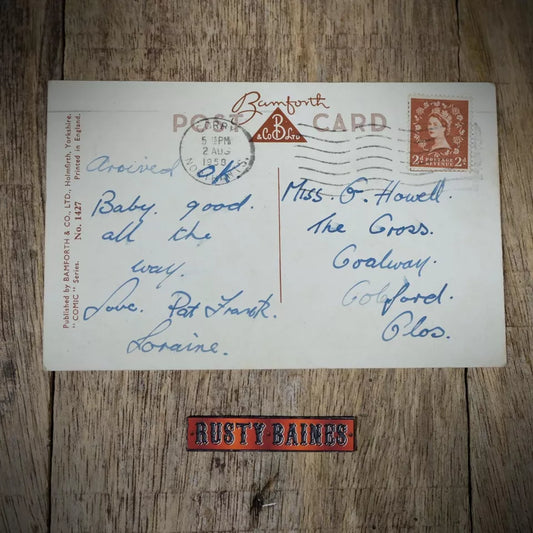 Bamforth
POST CARD
B
& Co LTD
5 PM
2 AUG
1958
2d POSTAGE REVENUE 2d
Published by BAMFORTH & CO., LTD., Holmfirth, Yorkshire.
"COMIC" Series. No. 1427 Printed in England.
Arrived OK
Baby. good.
all the
way.
Love. Pat Frank.
Loraine.
Miss. G. Howell.
The Cross.
Coalway.
Coleford.
Glos.
RUSTY BAINES